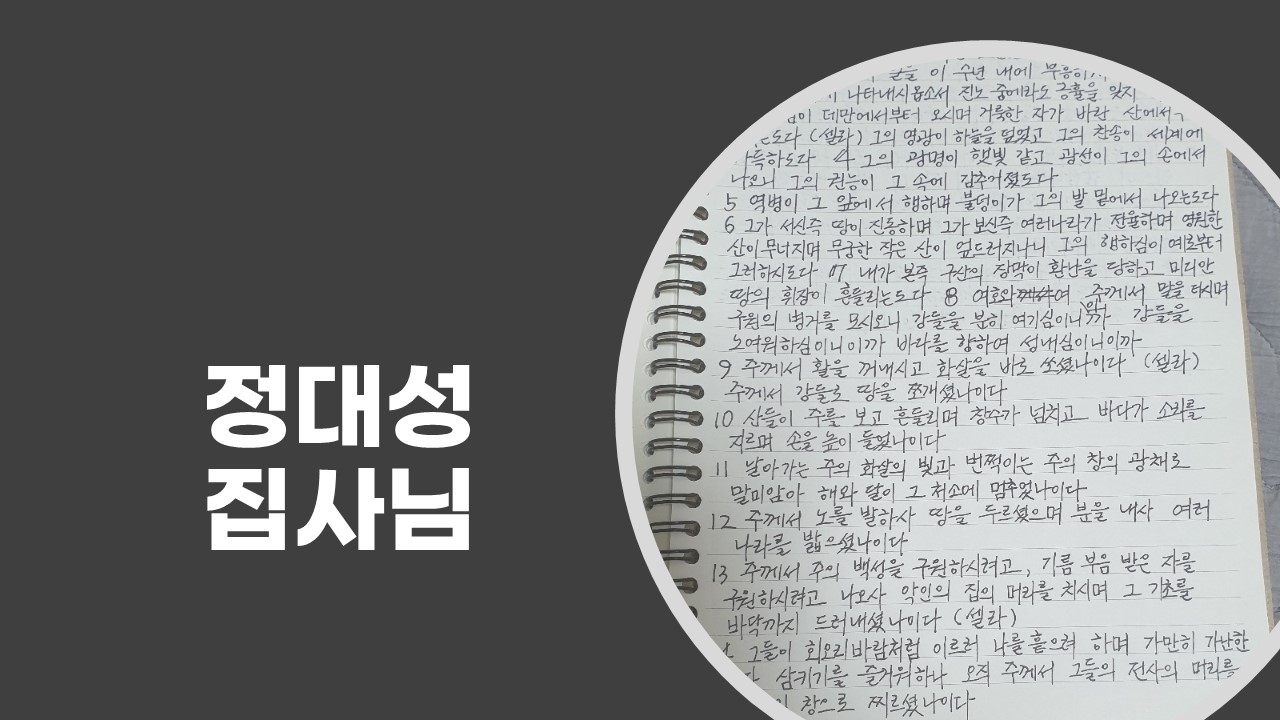 정대성
집사님
이 수년 내에
나타내시옵소서 진노 중에라도 긍휼을 잊지
데만에서부터 오시며 거룩한 자가 바란 산에서
(셀라) 그의 영광이 하늘을 덮였고 그의 찬송이 세계에
득하도다 4 그의 광명이 햇빛 같고 광선이 그의 손에서
나오니 그의 권능이 그 속에 감추어졌도다
5 역병이 그 앞에서 행하며 불덩이가 그의 발 밑에서 나오는도다
6 그가 서신즉 땅이 진동하며 그가 보신즉 여러나라가 전율하며 영원한
산이 무너지며 무궁한 작은 산이 엎드러지나니 그의 행하심이 예로부터
그러하시도다 7 내가 본즉 구산의 장막이 환난을 당하고 미디안
땅의 휘장이 흔들리는도다 8 여호와여 주께서 말을 타시며
구원의 병거를 모시오니 강들을 분히 여기심이니까 강들을
노여워하심이니이까 바라를 향하여 성내심이니이까
9 주께서 활을 꺼내시고 화살을 바로 쏘셨나이다 (셀라)
주께서 강들로 땅을 쪼개셨나이다
10 산들이 주를 보고 흔들리며 창수가 넘치고 바다가 소리를
지르며 손을 높이 들었나이다
11 날아가는 주의 화살의 빛과 번쩍이는 주의 창의 광채로
말미암아 해와 달이 그 처소에 멈추었나이다
12 주께서 노를 발하사 땅을 두르셨으며 분을 내사 여러
나라를 밟으셨나이다
13 주께서 주의 백성을 구원하시려고, 기름 부음 받은 자를
구원하시려고 나오사 악인의 집의 머리를 치시며 그 기초를
바닥까지 드러내셨나이다 (셀라)
그들이 회오리바람처럼 이르러 나를 흩으려 하며 가만히 가난한
삼키기를 즐거워하나 오직 주께서 그들의 전사의 머리를
창으로 찌르셨나이다